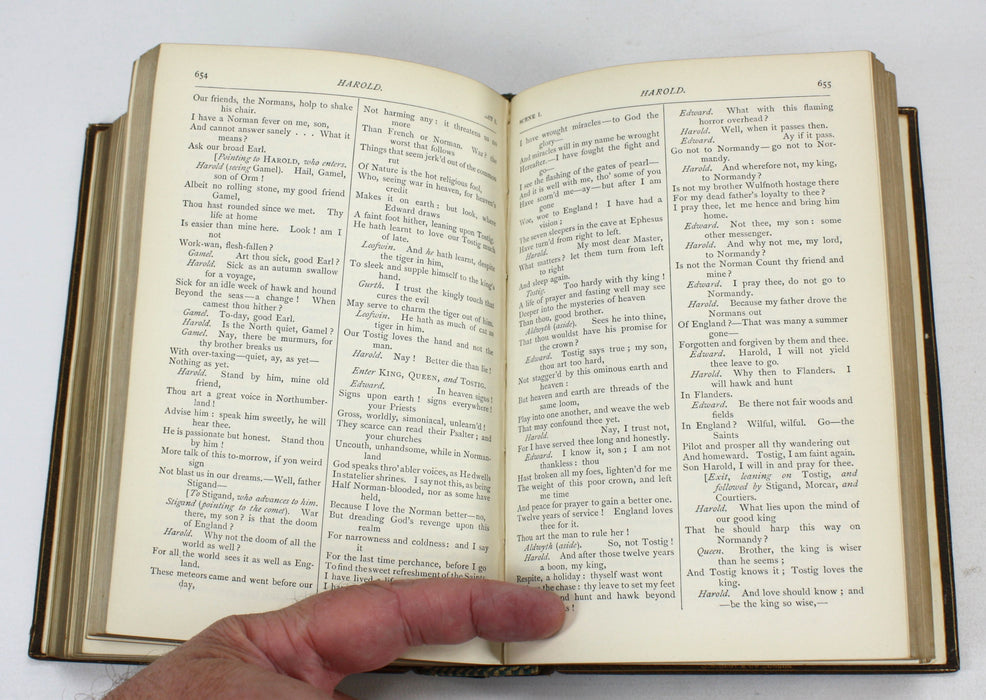 654
HAROLD.
Our friends, the Normans, holp to shake
his chair.
I have a Norman fever on me, son,
And cannot answer sanely . . . What it
means?
Ask our broad Earl.
[Pointing to HAROLD, who enters.
Harold (seeing Gamel). Hail, Gamel,
son of Orm!
Albeit no rolling stone, my good friend
Gamel,
Thou hast rounded since we met. Thy
life at home
Is easier than mine here. Look! am I
not
Work-wan, flesh-fallen?
Gamel. Art thou sick, good Earl?
Harold. Sick as an autumn swallow
for a voyage,
Sick for an idle week of hawk and hound
Beyond the seas—a change! When
camest thou hither?
Gamel. To-day, good Earl.
Harold. Is the North quiet, Gamel?
Gamel. Nay, there be murmurs, for
thy brother breaks us
With over-taxing—quiet, ay, as yet—
Nothing as yet.
Harold. Stand by him, mine old
friend,
Thou art a great voice in Northumber-
land!
Advise him: speak him sweetly, he will
hear thee.
He is passionate but honest. Stand thou
by him!
More talk of this to-morrow, if yon weird
sign
Not blast us in our dreams.—Well, father
Stigand—
[To Stigand, who advances to him.
Stigand (pointing to the comet). War
there, my son? is that the doom
of England?
Harold. Why not the doom of all the
world as well?
For all the world sees it as well as Eng-
land.
These meteors came and went before our
day,
Not harming any: it threatens us no
more
Than French or Norman. War? the
worst that follows
Things that seem jerk'd out of the common
rut
Of Nature is the hot religious fool,
Who, seeing war in heaven, for heaven's
credit
Makes it on earth: but look, where
Edward draws
A faint foot hither, leaning upon Tostig.
He hath learnt to love our Tostig much
of late.
Leofwin. And he hath learnt, despite
the tiger in him,
To sleek and supple himself to the king's
hand.
Gurth. I trust the kingly touch that
cures the evil
May serve to charm the tiger out of him.
Leofwin. He hath as much of cat as
tiger in him.
Our Tostig loves the hand and not the
man.
Harold. Nay! Better die than lie!
Enter KING, QUEEN, and TOSTIG.
Edward. In heaven signs!
Signs upon earth! signs everywhere!
your Priests
Gross, worldly, simoniacal, unlearn'd!
They scarce can read their Psalter; and
your churches
Uncouth, unhandsome, while in Norman-
land
God speaks thro' abler voices, as He dwells
In statelier shrines. I say not this, as being
Half Norman-blooded, nor as some have
held,
Because I love the Norman better—no,
But dreading God's revenge upon this
realm
For narrowness and coldness: and I say
it
For the last time perchance, before I go
To find the sweet refreshment of the Saints.
I have lived a life
HAROLD.
655
SCENE I.
I have wrought miracles—to God the
glory—
And miracles will in my name be wrought
Hereafter.—I have fought the fight and
go—
I see the flashing of the gates of pearl—
And it is well with me, tho' some of you
Have scorn'd me—ay—but after I am
gone
Woe, woe to England! I have had a
vision;
The seven sleepers in the cave at Ephesus
Have turn'd from right to left.
Harold. My most dear Master,
What matters? let them turn from left
to right
And sleep again.
Tostig. Too hardy with thy king!
A life of prayer and fasting well may see
Deeper into the mysteries of heaven
Than thou, good brother.
Aldwyth (aside). Sees he into thine,
That thou wouldst have his promise for
the crown?
Edward. Tostig says true; my son,
thou art too hard,
Not stagger'd by this ominous earth and
heaven:
But heaven and earth are threads of the
same loom,
Play into one another, and weave the web
That may confound thee yet.
Harold. Nay, I trust not,
For I have served thee long and honestly.
Edward. I know it, son; I am not
thankless: thou
Hast broken all my foes, lighten'd for me
The weight of this poor crown, and left
me time
And peace for prayer to gain a better one.
Twelve years of service! England loves
thee for it.
Thou art the man to rule her!
Aldwyth (aside). So, not Tostig!
Harold. And after those twelve years
a boon, my king,
Respite, a holiday: thyself wast wont
the chase: thy leave to set my feet
and hunt and hawk beyond
Edward. What with this flaming
horror overhead?
Harold. Well, when it passes then.
Edward. Ay if it pass.
Go not to Normandy—go not to Nor-
mandy.
Harold. And wherefore not, my king,
to Normandy?
Is not my brother Wulfnoth hostage there
For my dead father's loyalty to thee?
I pray thee, let me hence and bring him
home.
Edward. Not thee, my son: some
other messenger.
Harold. And why not me, my lord,
to Normandy?
Is not the Norman Count thy friend and
mine?
Edward. I pray thee, do not go to
Normandy.
Harold. Because my father drove the
Normans out
Of England?—That was many a summer
gone—
Forgotten and forgiven by them and thee.
Edward. Harold, I will not yield
thee leave to go.
Harold. Why then to Flanders. I
will hawk and hunt
In Flanders.
Edward. Be there not fair woods and
fields
In England? Wilful, wilful. Go—the
Saints
Pilot and prosper all thy wandering out
And homeward. Tostig, I am faint again.
Son Harold, I will in and pray for thee.
[Exit, leaning on Tostig, and
followed by Stigand, Morcar, and
Courtiers.
Harold. What lies upon the mind of
our good king
That he should harp this way on
Normandy?
Queen. Brother, the king is wiser
than he seems;
And Tostig knows it; Tostig loves the
king.
Harold. And love should know; and
—be the king so wise,—